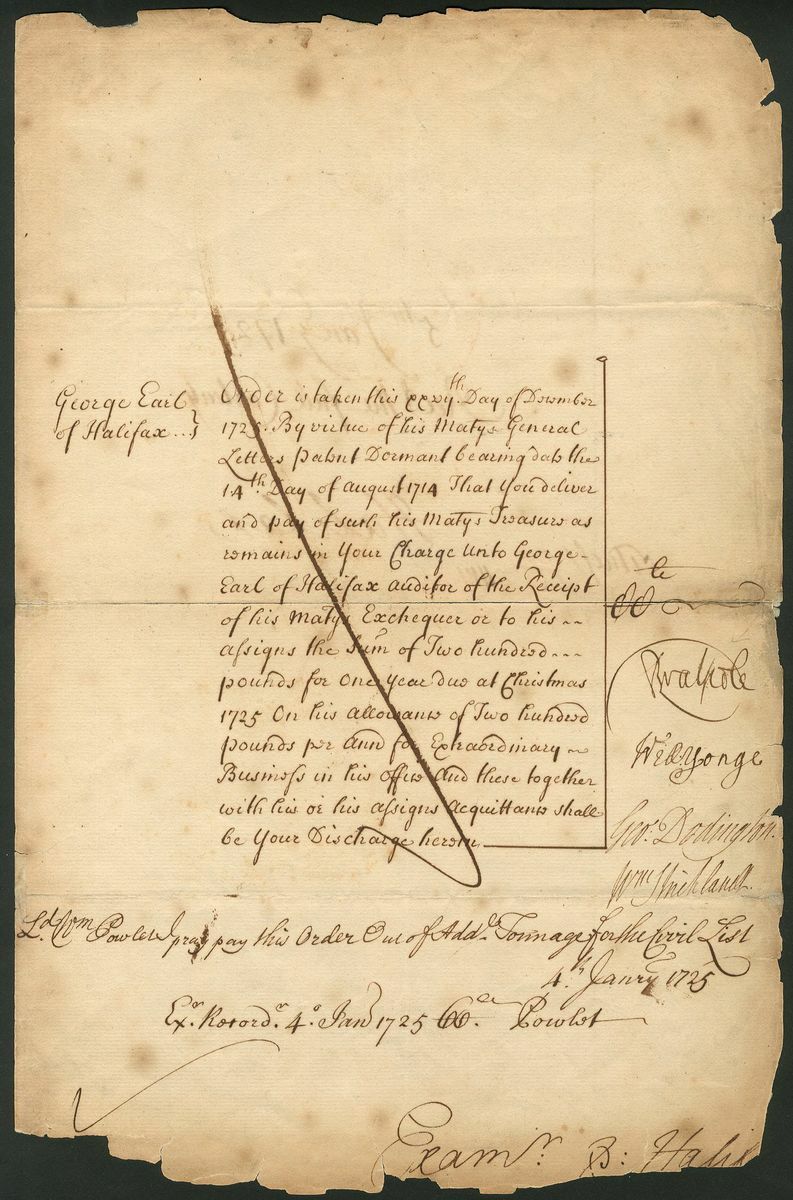 George Earl
of Halifax
Order is taken this xxvijth. Day of December
1725. By virtue of his Matys General
Letters patent Dormant bearing date the
14th Day of august 1714 That you deliver
and pay of such his Matys Treasure as
remains in Your Charge Unto George
Earl of Halifax auditor of the Receipt
of his Matys Exchequer or to his
assigns the Sum of Two hundred
pounds for One Year due at Christmas
1725 On his allowance of Two hundred
pounds per Ann for Extraordinary
Business in his office And these together
with his or his assigns Acquittance shall
be Your Discharge herein
RWalpole
Wm Yonge
Geo. Dodington.
Wm Strickland.
Ld. Wm Powlet I pray pay this Order Out of Addl. Tonnage for the Civil List
4th. Janry 1725
Exr. Record. 4o. Jan 1725 Powlet
Examr. P: Halif